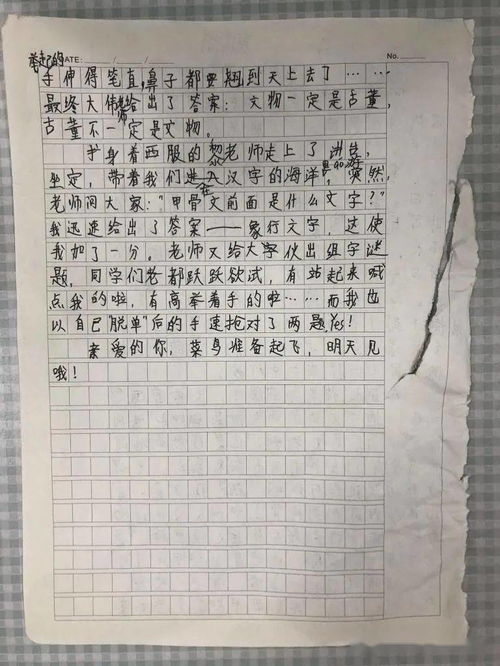 举起的 DATE: / / No.
手伸得笔直,鼻子都要翘到天上去了……
最终大伟老师给出了答案:文物一定是古董,
古董不一定是文物。
身着西服的黎老师走上了讲台,
坐定,带着我们进入在汉字的海洋里面游,突然,
老师问大家:"甲骨文前面是什么文字?"
我迅速给出了答案——象行文字,这使
我加了一分。老师又给大字伙出组字谜
题,同学们老都跃跃欲试,有站起来喊
点我的啦,有高牵着手的啦……而我也
以自己"脱单"后的手速抢对了两题,Yes!
亲爱的你,菜鸟准备起飞,明天见
哦!